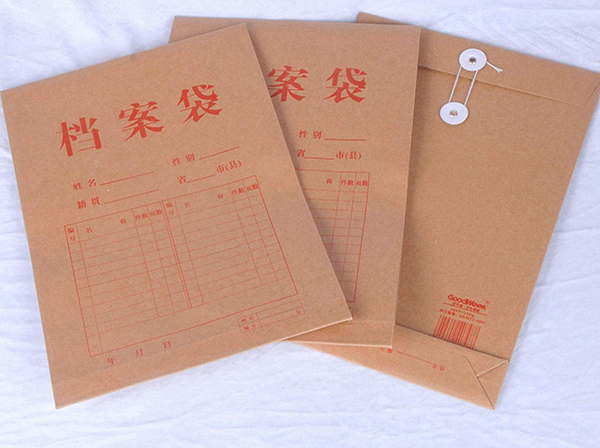 档案袋
姓名 性别
籍贯 省 市(县)
编号 名 称 件数 页数 编号 名 称 件数 页数
年 月 日
案袋
性别
省 市(县)
称 件数 页数
GoodWeek